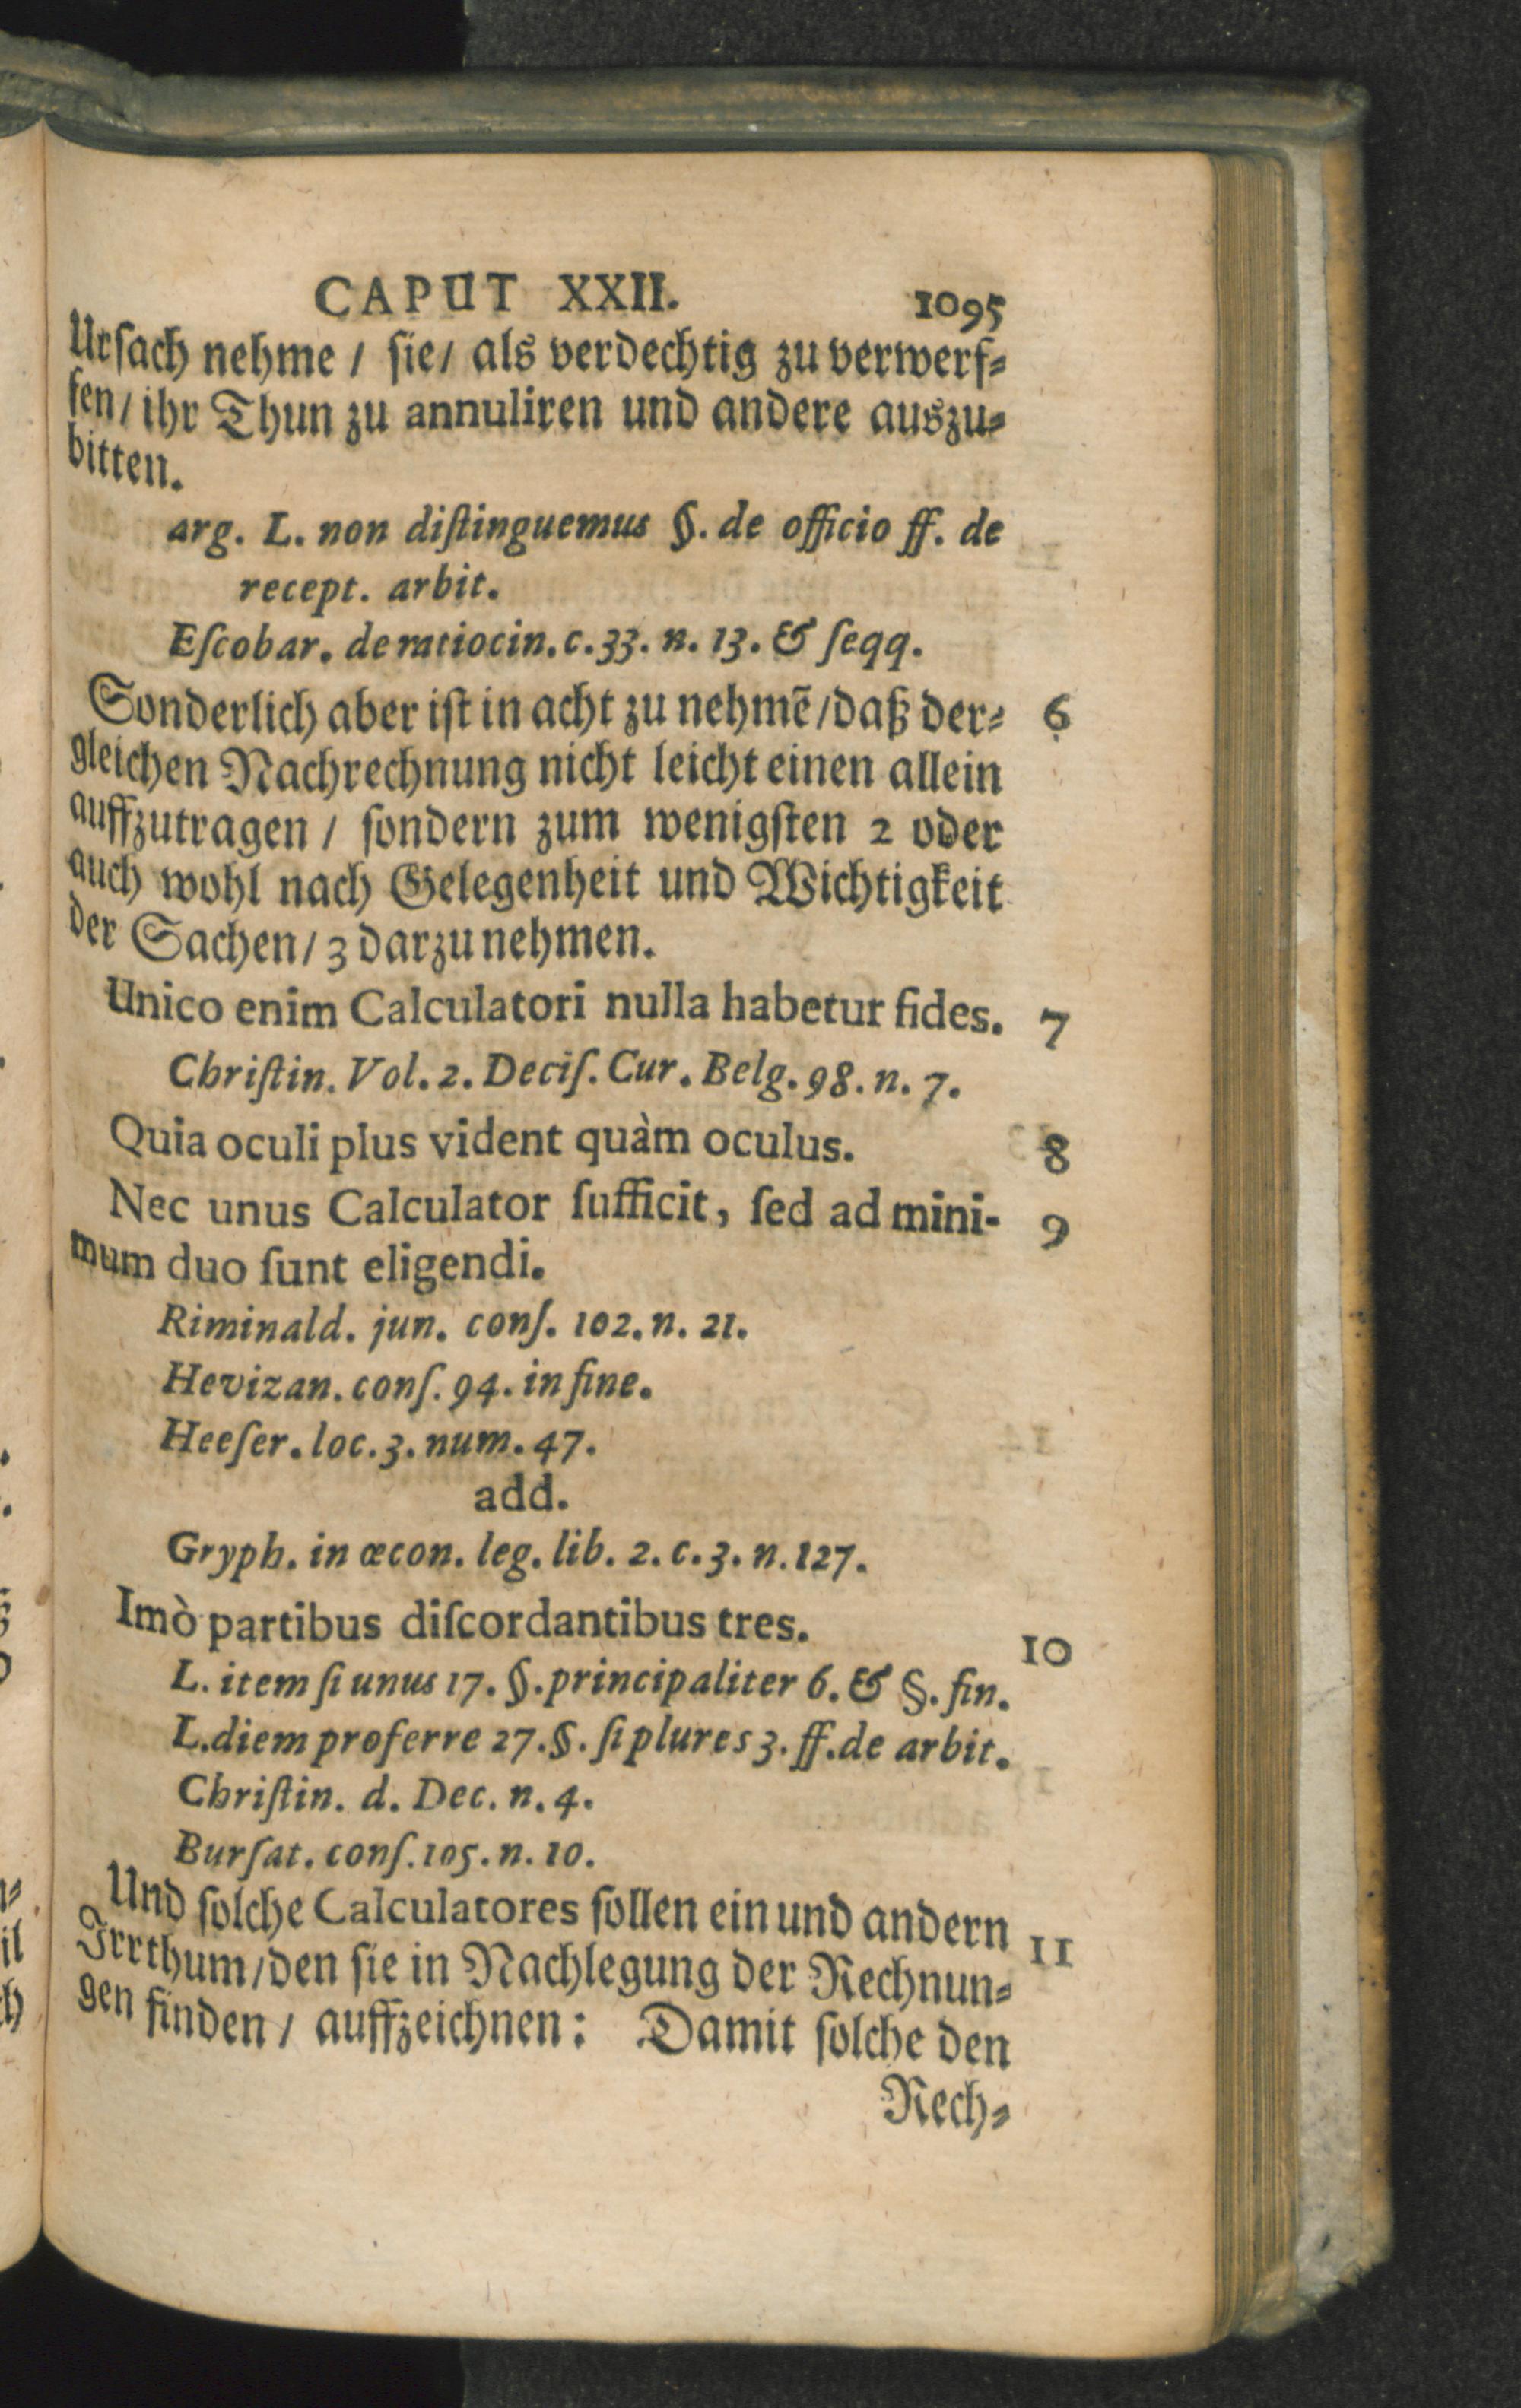 CAPUT XXII. 1095
Urſach nehme / ſie / als verdechtig zu verwerf⸗
fen / ihr Thun zu annuliren und andere auszu⸗
bitten.
arg. L. non diſtinguemus §. de officio ff. de
recept. arbit.
Eſcobar. de ratiocin. c. 33. n. 13. & ſeqq.
Sonderlich aber iſt in acht zu nehmẽ / daß der⸗ 6
gleichen Nachrechnung nicht leicht einen allein
auffzutragen / ſondern zum wenigſten 2 oder
auch wohl nach Gelegenheit und Wichtigkeit
der Sachen / 3 darzu nehmen.
Unico enim Calculatori nulla habetur fides. 7
Chriſtin. Vol. 2. Deciſ. Cur. Belg. 98. n. 7.
Quia oculi plus vident quàm oculus. 8
Nec unus Calculator ſufficit, ſed ad mini- 9
mum duo ſunt eligendi.
Riminald. jun. conſ. 102. n. 21.
Hevizan. conſ. 94. in fine.
Heeſer. loc. 3. num. 47.
add.
Gryph. in œcon. leg. lib. 2. c. 3. n. 127.
Imò partibus diſcordantibus tres. 10
L. item ſi unus 17. §. principaliter 6. & §. fin.
L. diem proferre 27. §. ſi plures 3. ff. de arbit.
Chriſtin. d. Dec. n. 4.
Burſat. conſ. 105. n. 10.
Und ſolche Calculatores ſollen ein und andern 11
Irrthum / den ſie in Nachlegung der Rechnun⸗
gen finden / auffzeichnen: Damit ſolche den
Rech⸗